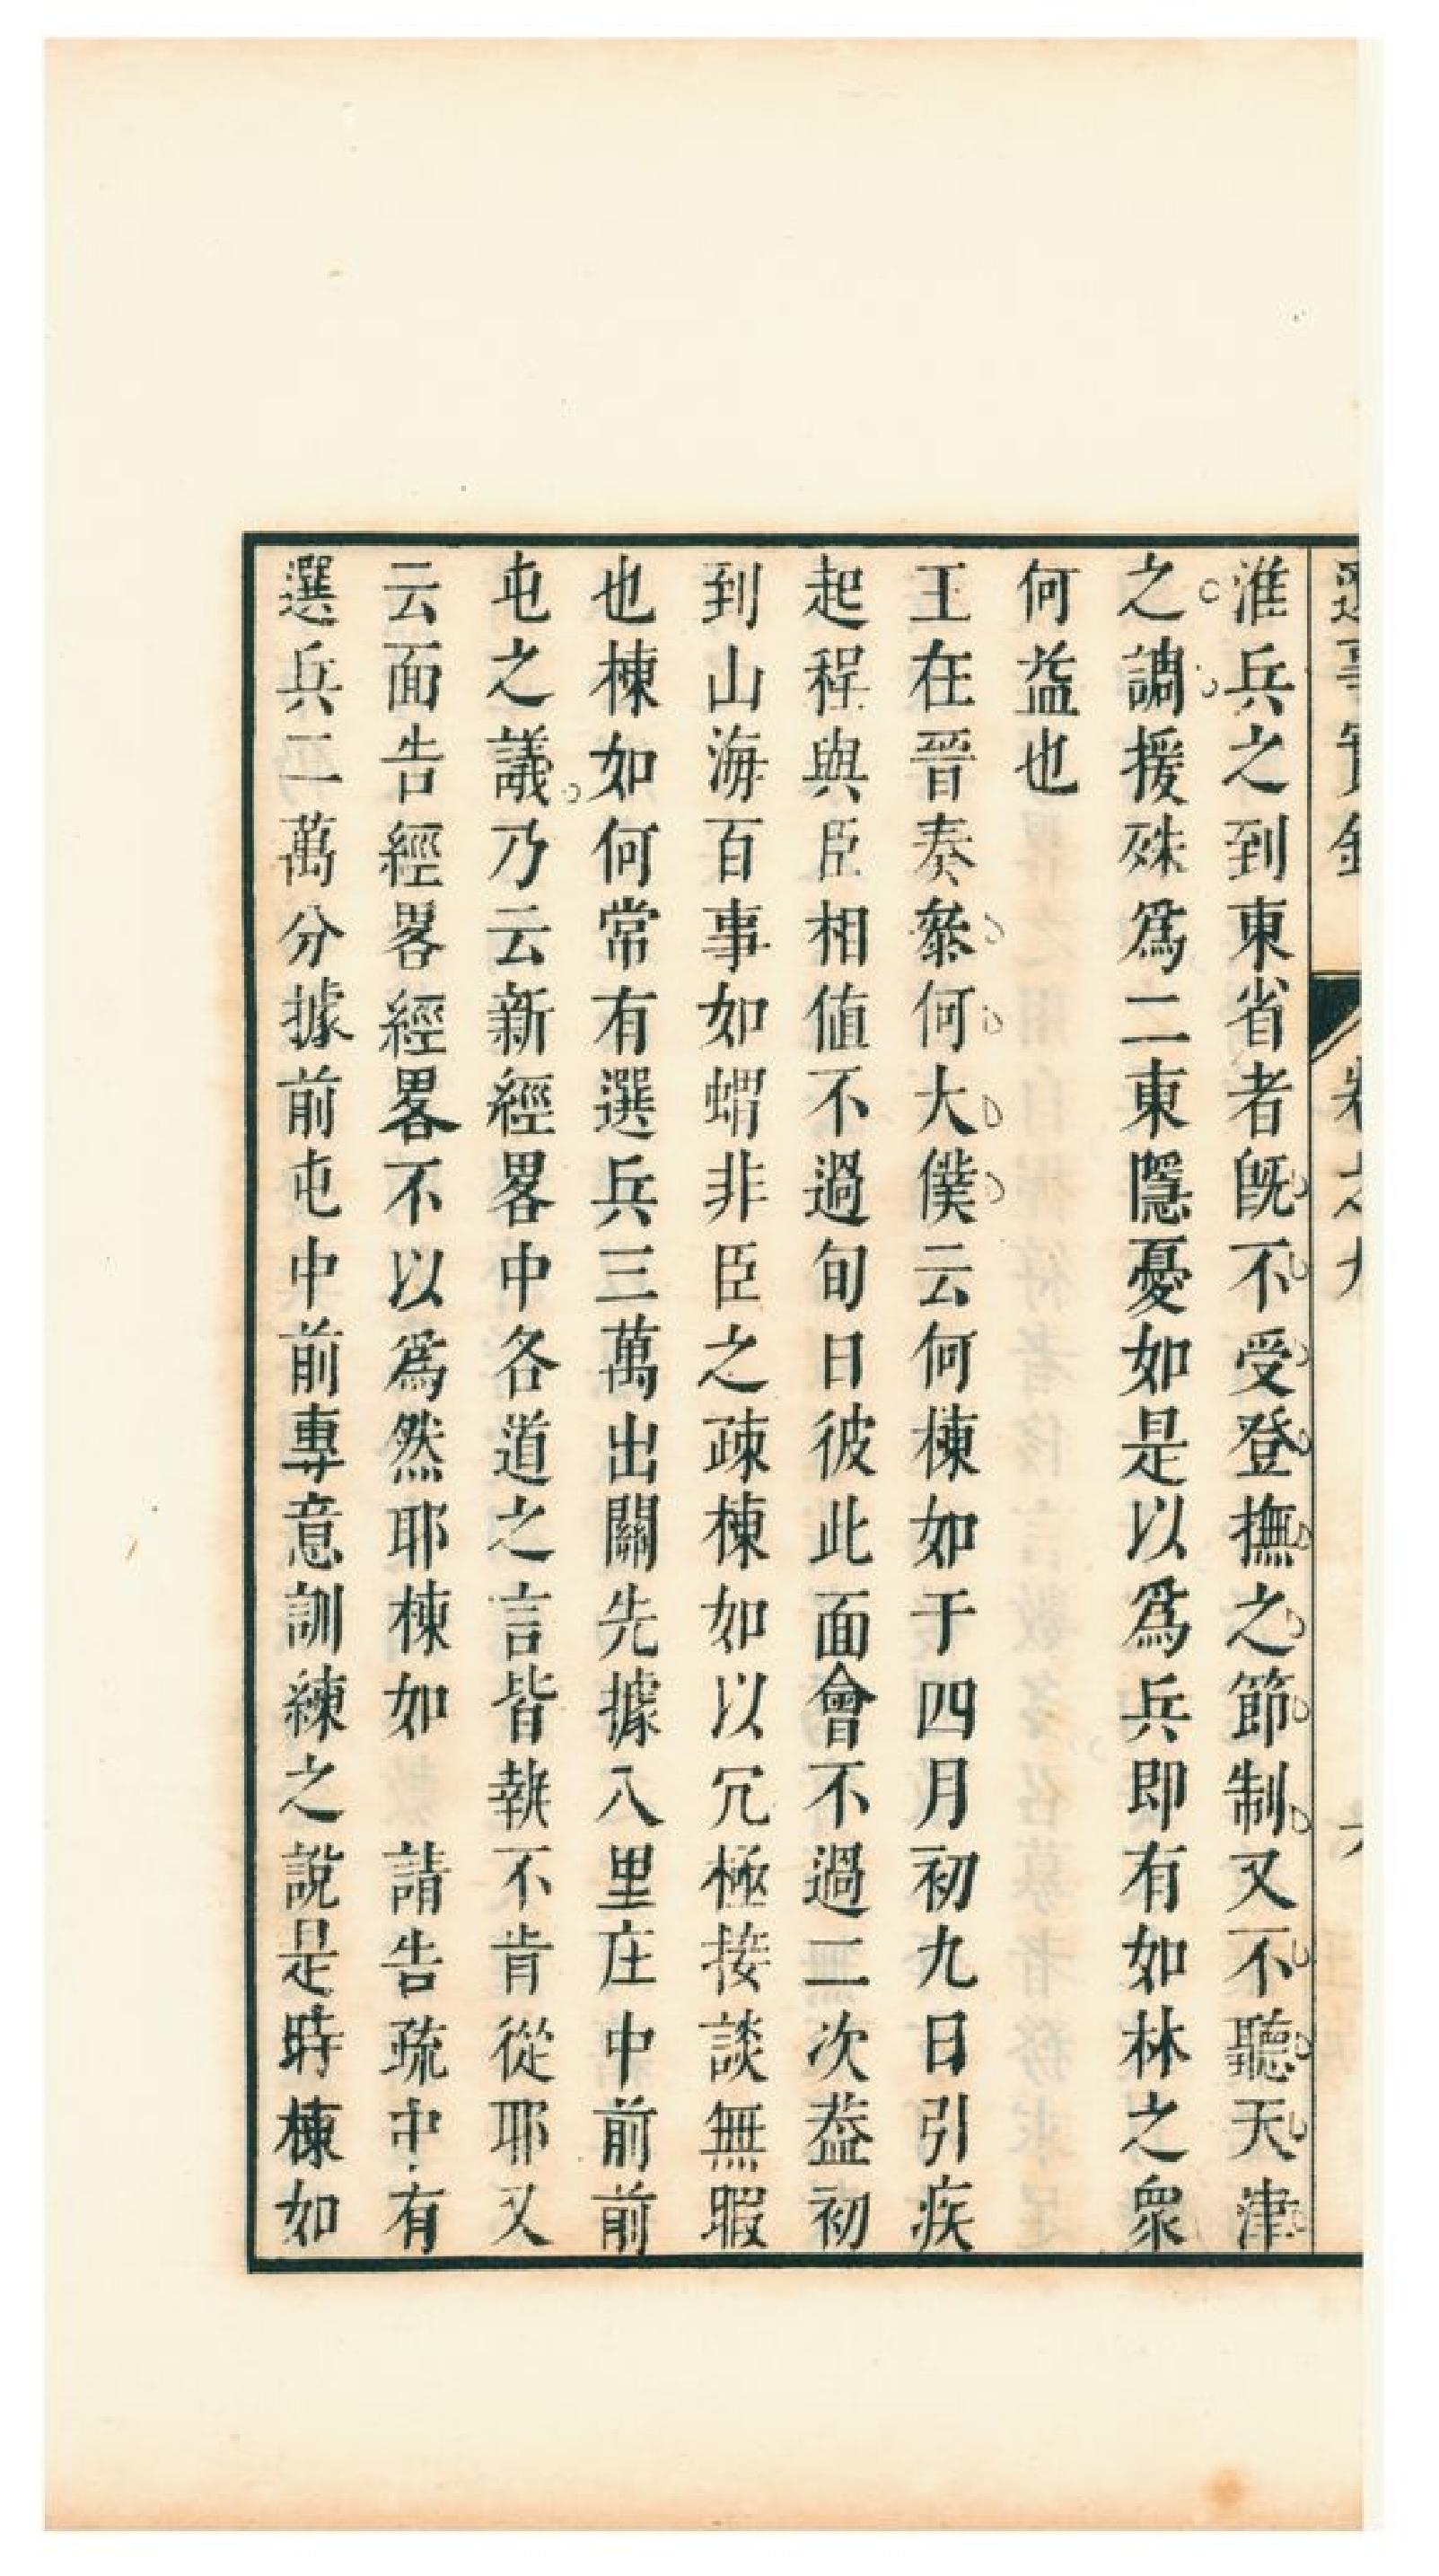 淮兵之到東省者旣不受登撫之節制又不聽天津
之調援殊爲二東隱憂如是以爲兵卽有如林之衆
何益也
王在晉奏叅何大僕云何棟如于四月初九日引疾
起程與臣相値不過旬日彼此面會不過二次葢初
到山海百事如蝟非臣之疎棟如以冗極接談無暇
也棟如何常有選兵三萬出關先據八里庄中前前
屯之議乃云新經畧中各道之言皆執不肯從耶又
云面告經畧經畧不以爲然耶棟如 請告疏中有
選兵二萬分據前屯中前專意訓練之說是時棟如